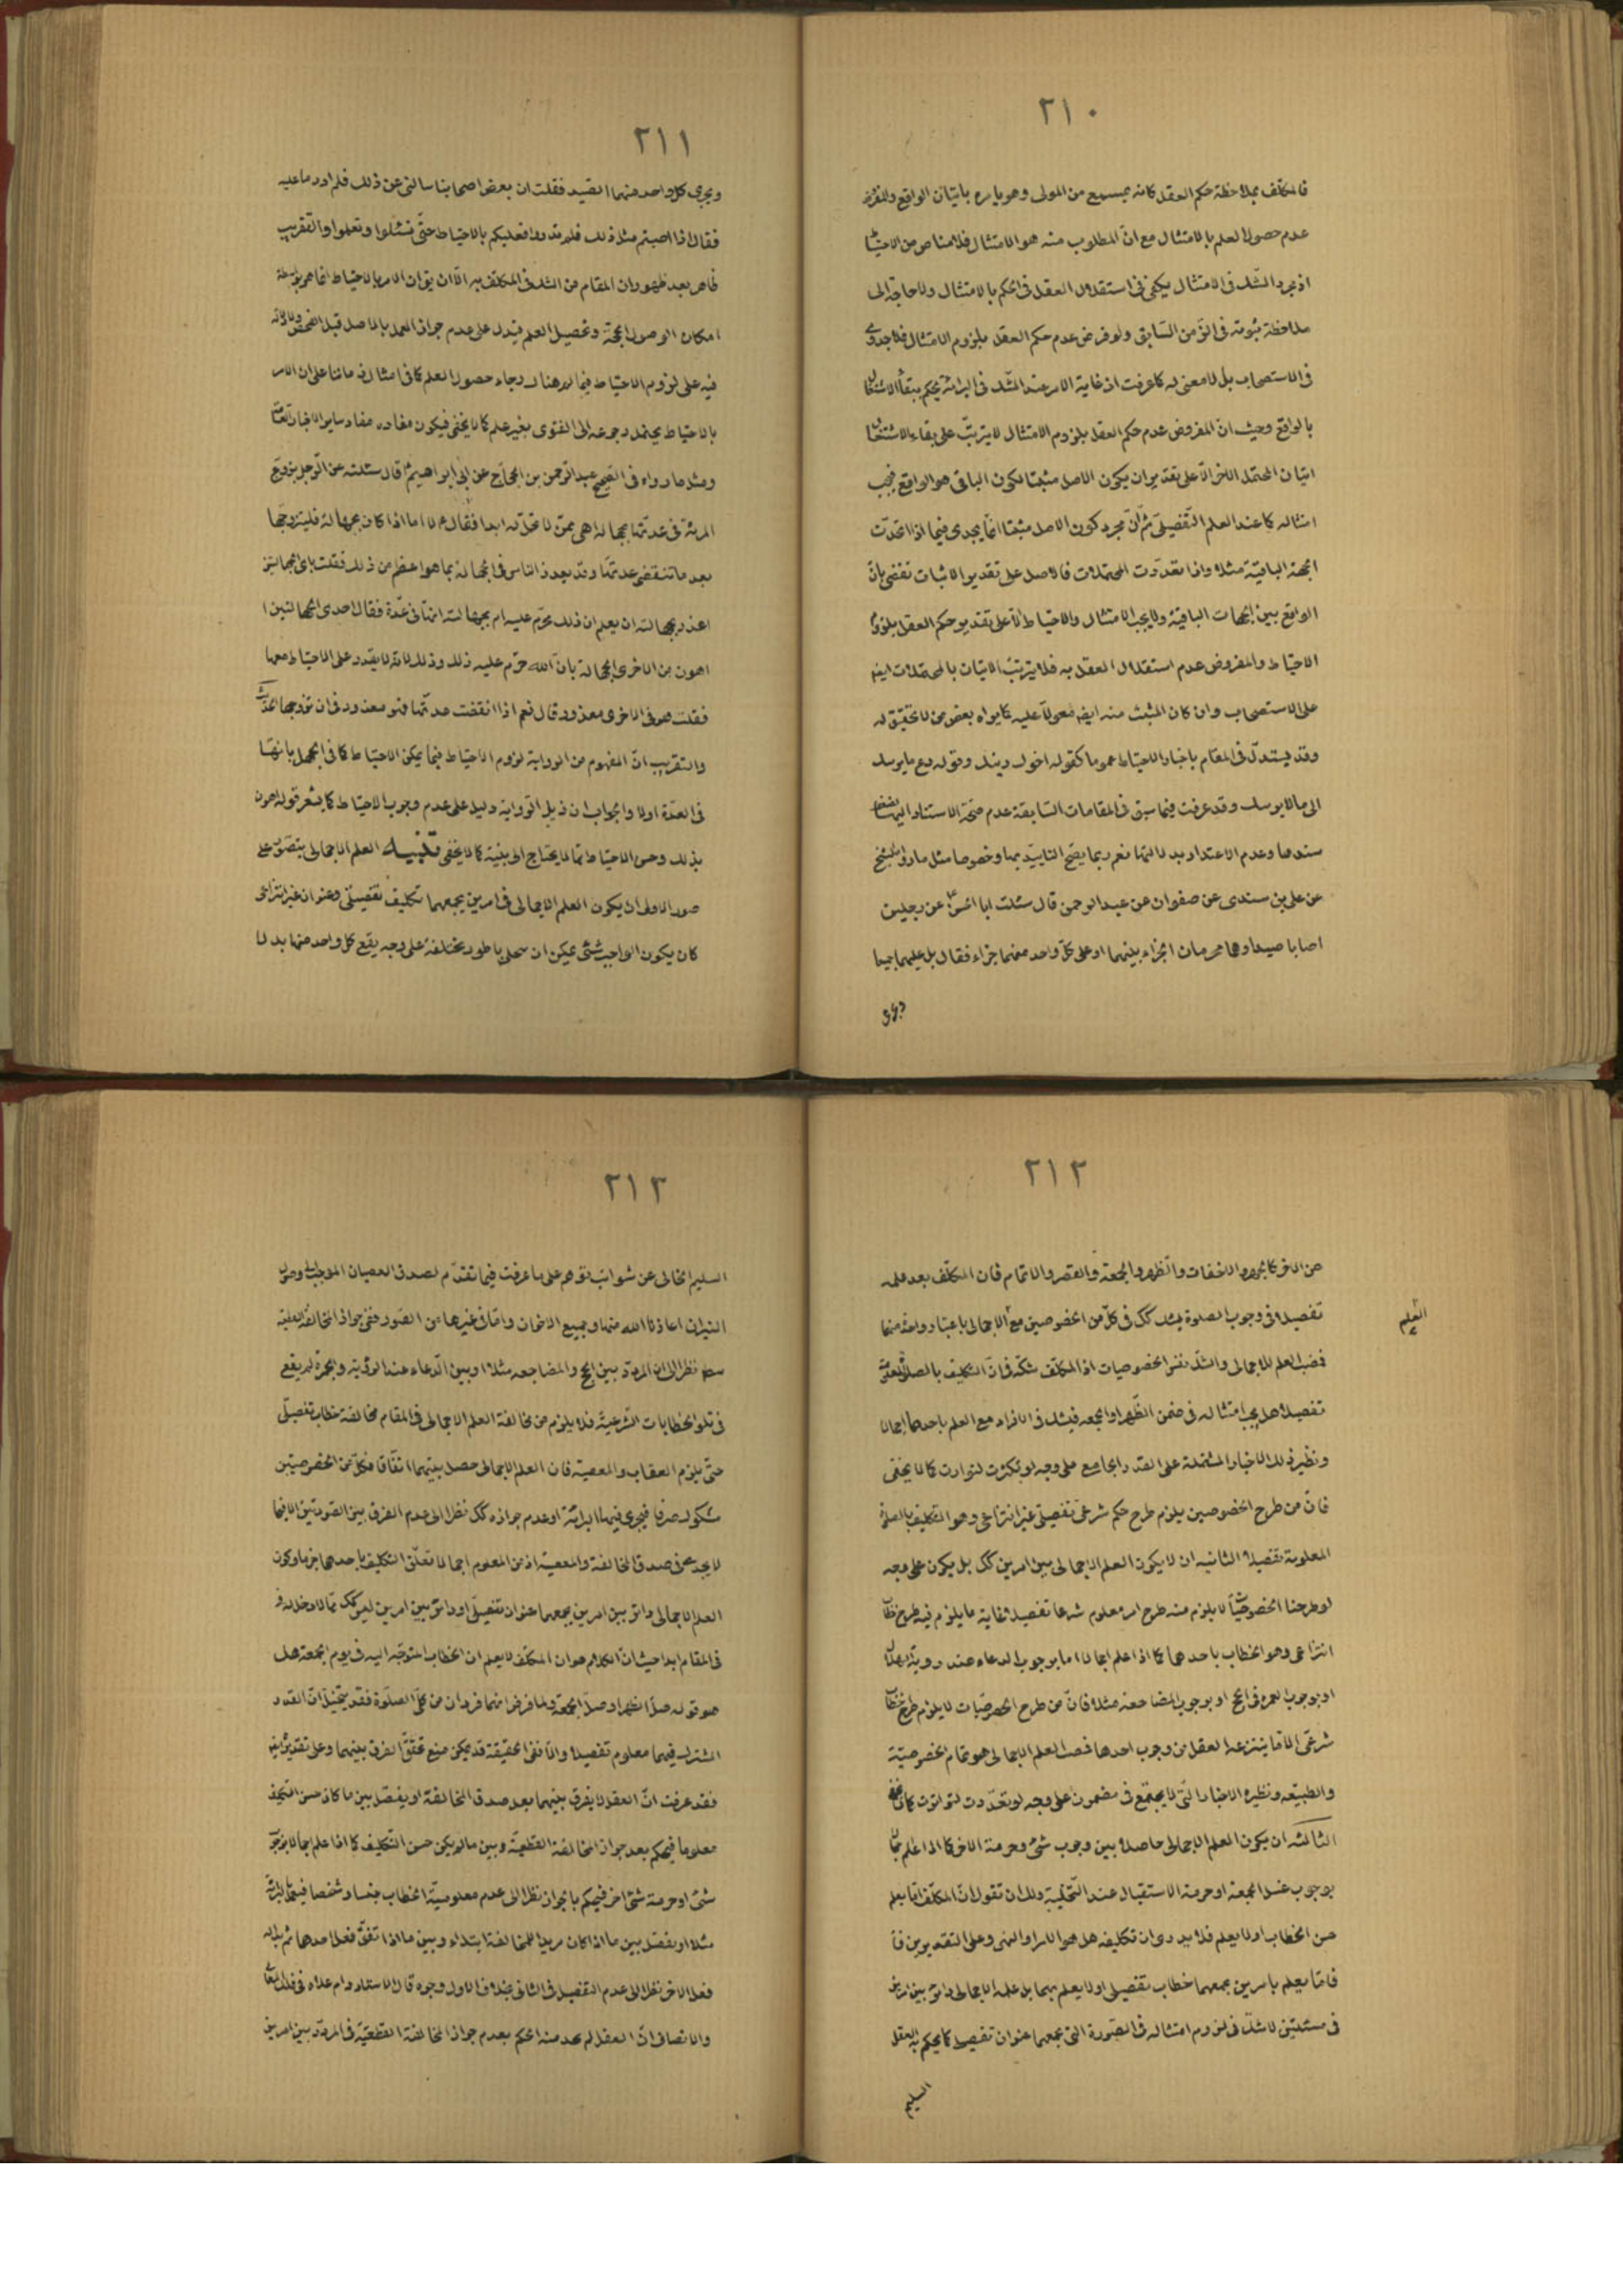 ٢١٠
فالمكلّف بملاحظة حكم العقل كانه يسمع من المولى وهو يامره باتيان الواقع والمفروض
عدم حصول العلم بالامتثال مع انّ المطلوب منه هو الامتثال فلا مناص من الاحتياط
اذ مجرد الشّك فى الامتثال يكفى فى استقلال العقل فى الحكم بالامتثال ولا حاجة الى
ملاحظة ثبوته فى الزّمن السّابق ولو فرض عدم حكم العقل بلزوم الامتثال فلا جدوى
فى الاستصحاب بل لا معنى له كما عرفت اذ غاية الامر عند الشّك فى البرائة يحكم ببقاء الاشتغال
بالواقع وحيث انّ المفروض عدم حكم العقل بلزوم الامتثال لا يترتّب على بقاء الاشتغال
اتيان المحتمل الاخر الّا على تقدير ان يكون الاصل مثبتا لكون الباقى هو الواقع فيجب
امتثاله كما عند العلم التّفصيلىّ ثمّ انّ مجرد كون الاصل مثبتا انّما يجدى فيما اذا اتّحدت
الجهة الباقيّة مثلا واذا تعدّدت المحتملات فالاصل على تقدير الاثبات تقضى بانّ
الواقع بين الجهات الباقية ولا يجب الامتثال والاحتياط الّا على تقدير حكم العقل بلزوم
الاحتياط والمفروض عدم استقلال العقل به فلا يترتّب الاتيان بالمحتملات ايضا
على الاستصحاب وان كان المثبت منه ايضا معولا عليه كما يراه بعض من لا تحقيق له
وقد يستدلّ فى المقام باخبار الاحتياط عموما كقوله اخوك دينك وقوله دع ما يريبك
الى ما لا يريبك وقد عرفت فيما سبق فى المقامات السّابقة عدم صحّة الاستناد اليها لضعف
سندها وعدم الاعتداد بدلالتها نعم ربما يصّح التاييد بها وخصوصا مثل ما رواه الشيخ
عن على بن سندى عن صفوان عن عبد الرحمن قال سئلت ابا الحسن ع عن رجلين
اصابا صيدا وهما محرمان الجزاء بينهما او على كلّ واحد منهما جزاء فقال بل عليهما جميعا
ويجزى
٢١١
ويجزى كل واحد منهما الصّيد فقلت ان بعض اصحابنا سالنى عن ذلك فلم ادر ما عليه
فقال اذا اصبتم مثل ذلك فلم تدروا فعليكم بالاحتياط حتّى تسئلوا وتعلموا والتّقريب
ظاهر بعد ظهور ان المقام من الشك فى المكلف به الّا ان يق ان الامر بالاحتياط انما هو بواسطة
امكان الوصول الحجّة وتحصيل العلم فيدل على عدم جواز العمل بالاصل قبل الفحص ولا دلالة
فيه على لزوم الاحتياط فيما لم هناك رجاء حصول العلم كما فى امثال زماننا على ان الامر
بالاحتياط يحتمل رجوعه الى الفتوى بغير علم كما لا يخفى فيكون مفاده مفاد ساير الاخبار
ومثل ما رواه فى الصّحيح عبد الرّحمن بن الحجّاج عن ابى ابراهيم ع قال سئلته عن الرّجل يزوّج
المرئة فى عدّتها بجهالة اهى ممّن لا تحلّ له ابدا فقال ع لا اما اذا كان بجهالة فليتزوجها
بعد ما تنقضى عدّتها وقد يعذر الناس فى الجهالة بما هو اعظم من ذلك فقلت باىّ الجهالتين
اعذر بجهالته ان يعلم ان ذلك محرّم عليه ام بجهالته انّها فى عدّة فقال احدى الجهالتين
اهون من الاخرى الجهالة بانّ الله حرّم عليه ذلك وذلك لانه لا يقدر على الاحتياط معها
فقلت هو فى الاخرى معذور قال نعم اذا انقضت عدتّها فهو معذور فى ان تزوجها الحديث
والتقريب انّ المفهوم من الرواية لزوم الاحتياط فيما يمكن الاحتياط كما فى الجهل بانّها
فى العدّة اولا والجواب ان ذيل الرّواية دليل على عدم وجوب الاحتياط كما يشعر قوله اهون
بذلك وحسن الاحتياط ممّا لا يحتاج الى بيّنة كما لا يخفى تنبيه العلم الاجمالى يتصوّر على
صور الاولى ان يكون العلم الاجمالى فى امرين يجمعهما تكليف تفصيلىّ وعنوان غير انتزاعى
كان يكون الواجب شئ يمكن ان باطور مختلفة على وجه يقع كل واحد منهما بدلا
٢١٢
من الاخر كالجهر والاخفات والظّهر والجمعة والقصر والاتمام فان المكلّف بعد علمه
تفصيلا فى وجوب الصلوة يشك فى كلّ من الخصوصين مع العلم الاجمالى باعتبار واحد منهما
العلم
فمصبّ العلم الاجمالى والشّك نفس الخصوصيات اذ المكلّف شكّه فى انّ التكليف بالصلوة المعلومة
تفصيلا هل يجب امتثاله فى ضمن الظّهر او الجمعة فيشك فى الافراد مع العلم باحدهما اجمالا
ونظير ذلك الاخبار المشتملة على القدر الجامع على وجه لو تكثرت لتواترت كما لا يخفى
فانّ من طرح الخصوصين يلزم طرح حكم شرعىّ تفصيلىّ غير انتزاعى وهو التكليف بالصلوة
المعلومة تفصيلا الثانيه ان لا يكون العلم الاجمالى بين امرين كك بل يكون على وجه
لو طرحنا الخصوصيّات لا يلزم منه طرح امر معلوم شرعا تفصيلا وغاية ما يلزم فيه طرح خطاب
انتزاعى وهو الخطاب باحدهما كما اذا علم اجمالا اما بوجوب الدعاء عند روية الهلال
او بوجوب العمرة فى الحج او بوجوب المضاجعه مثلا فانّ من طرح الخصوصيّات لا يلزم طرح خطاب
شرعىّ الّا ما ينتزعه العقل من وجوب احدهما فمصب العلم الاجمالى هو تمام الخصوصيّة
والطبيعة ونظيره الاخبار الّتى لا يجتمع فى مضمون على وجه لو تعدّدت لتواترت كما لا يخفى
الثالثه ان يكون العلم الاجمالى حاصلا بين وجوب شئ وحرمة الاخر كما اذا علم اجمالا
بوجوب غسل الجمعة او حرمة الاستقبال عند التّخلية ولك ان تقول انّ المكلّف امّا يعلم
جنس الخطاب او لا يعلم فلا يدرى ان تكليفه هل هو الامر او النهى وعلى التقديرين
فامّا يعلم بامرين يجمعهما خطاب تفصيلى او لا يعلم بهما بل علمه الاجمالى دائر بين امرين
فى مسئلتين لا شكّ فى لزوم امتثاله فى الصّورة التى يجمعهما عنوان تفصيلى كما يحكم به العقل
السليم
٢١٣
السليم الخالى عن شوائب توهم على ما عرفت فيما تقدّم لصدق العصيان الموجب لوصول
النيران اعاذنا الله منها وجميع الاخوان وامّا فى غيرها من الصّور ففى جواز المخالفة القطعية
نظرا الى ان المردّد بين الحج والمضاجعه مثلا او بين الدّعاء عند الرؤية لم يقع
فى تلو الخطابات الشّرعيّة فلا يلزم من مخالفة العلم الاجمالى فى المقام مخالفة خطاب تفصيلىّ
حتّى يلزم العقاب والمعصية فان العلم الاجمالى حصل بينهما اتفاقا فكلّ من الخصوصيتين
مشكوك صرفا فيجرى فيهما البرائة او عدم جوازه كك نظرا الى عدم الفرق بين الصّورتين
لا يجدى فى صدق المخالفة والمعصية اذ من المعلوم اجمالا تعلّق التكليف باحدهما جزما وكون
العلم الاجمالى دائر بين امرين يجمعهما عنوان تفصيلىّ او دائر بين امرين ليس كك ممّا لا دخل له
فى المقام ابدا حيث انّ الكلام هو ان المكلّف لا يعلم ان الخطاب المتوجّه اليه فى يوم الجمعة هل
هو قوله صلّ الظهر او صلّ الجمعة ولما فرض انهما فردان من كلّى الصلوة فقد يتخيّل انّ القدر
المشترك فيهما معلوم تفصيلا والّا ففى الحقيقة قد يمكن منع تحقّق الفرق بينهما وعلى تقديره ايضا
فقد عرفت انّ العقل لا يفرق بينهما بعد صدق المخالفة او يفصّل بين ما كان جنس التّكليف
معلوما فيحكم بعدم جواز المخالفة القطعيّة وبين ما لم يكن جنس التّكليف كما اذا علم اجمالا بوجوب
شئ او حرمة شئ اخر فيحكم بالجواز نظرا الى عدم معلوميّة الخطاب جنسا وشخصا فيهما البرائة
مثلا او يفصّل بين ما اذا كان مريدا للمخالفة ابتداء وبين ما اذا اتّفق فعل احدهما ثم بدا له
فعل الاخر نظرا الى عدم التّفصيل فى الثانى بخلاف الاول وجوه قال الاستاد دام علاه
والانصاف انّ العقل لم يجد منه الحكم بعدم جواز المخالفة القطعيّة فى المردّد بين امرين